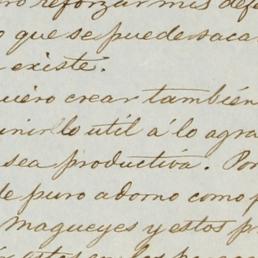 reforzar mis def
que se puede saca
existe.
uiero crear también
unir lo util á lo agra
sea productiva. Por
de puro adorno como p
Magueyes y estos p